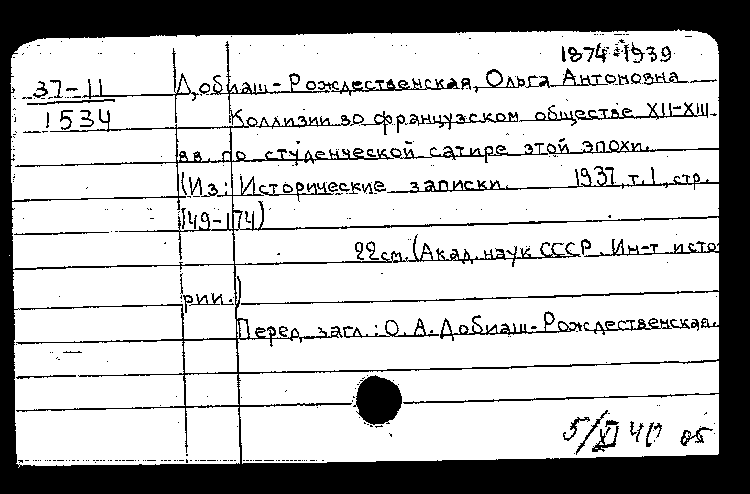 1874-1939
37-11 Добиаш-Рождественская, Ольга Антоновна
1534 Коллизии во французском обществе XII-XIII
вв. по студенческой сатире этой эпохи.
(Из: Исторические записки. 1937, т. 1, стр.
149-174)
22 см. (Акад. наук СССР. Ин-т исто
рии.)
Перед загл.: О. А. Добиаш-Рождественская.
5/XI 40